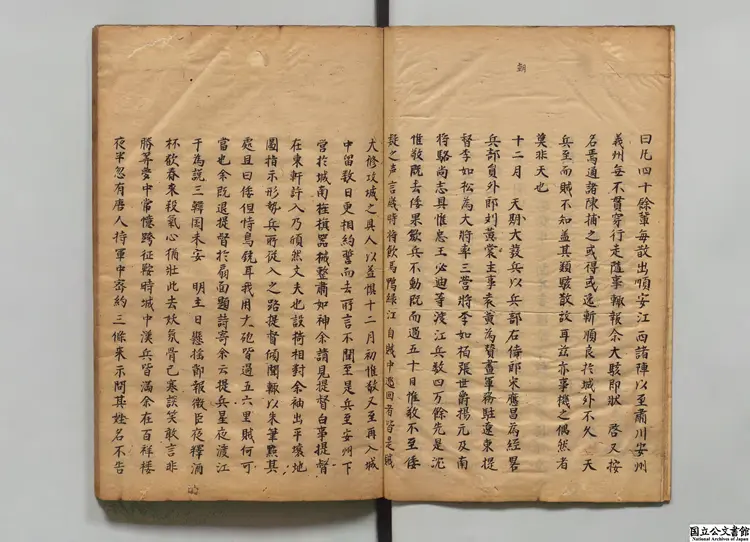 朝
曰凡四十餘輩每散出順安江西諸陣以至肅川安州
義州無不貫穿行走隨事輒報余大駭即狀 啓又按
名焉通諸陳捕之或得或逸斬順良於城外不久 天
兵至而賊不知盖其類駭散故耳玆亦事機之偶然者
莫非天也
十二月 天朝大發兵以兵部右侍郎宋應昌為經畧
兵部員外郎刘黄裳主事袁黄為賛畫軍務駐遼東提
督李如松為大將率三營將李如栢張世爵揚元及南
將駱尚志具惟忠王必迪等渡江兵数四万餘先是沈
惟敬既去倭果歛兵不動既而過五十日惟敬不至倭
疑之声言歲時將飲馬鴨綠江自賊中逃回者皆是賊
大修攻城之具人以益懼十二月初惟敬又至再入城
中留数日更相約誓而去所言不聞至是兵至安州下
營於城南旌旗器械整肅如神余請見提督白事提督
在東軒許入乃頎然丈夫也設椅相對余袖出平壤地
圖指示形势兵所從入之路提督傾聞輒以朱筆點其
處且曰倭但恃鳥銃耳我用大砲皆過五六里賊何可
當也余既退提督於扇面題詩寄余云提兵星夜渡江
干為説三韓国未安 明主日懸㨗節報微臣夜釋酒
杯欢春來殺氣心猶壯此去妖氛骨已寒談笑敢言非
勝筭夢中常憶跨征鞍時城中漢兵皆滿余在百祥楼
夜半忽有唐人持軍中密約三條来示問其姓名不告
国立公文書館
National Archives of Japan